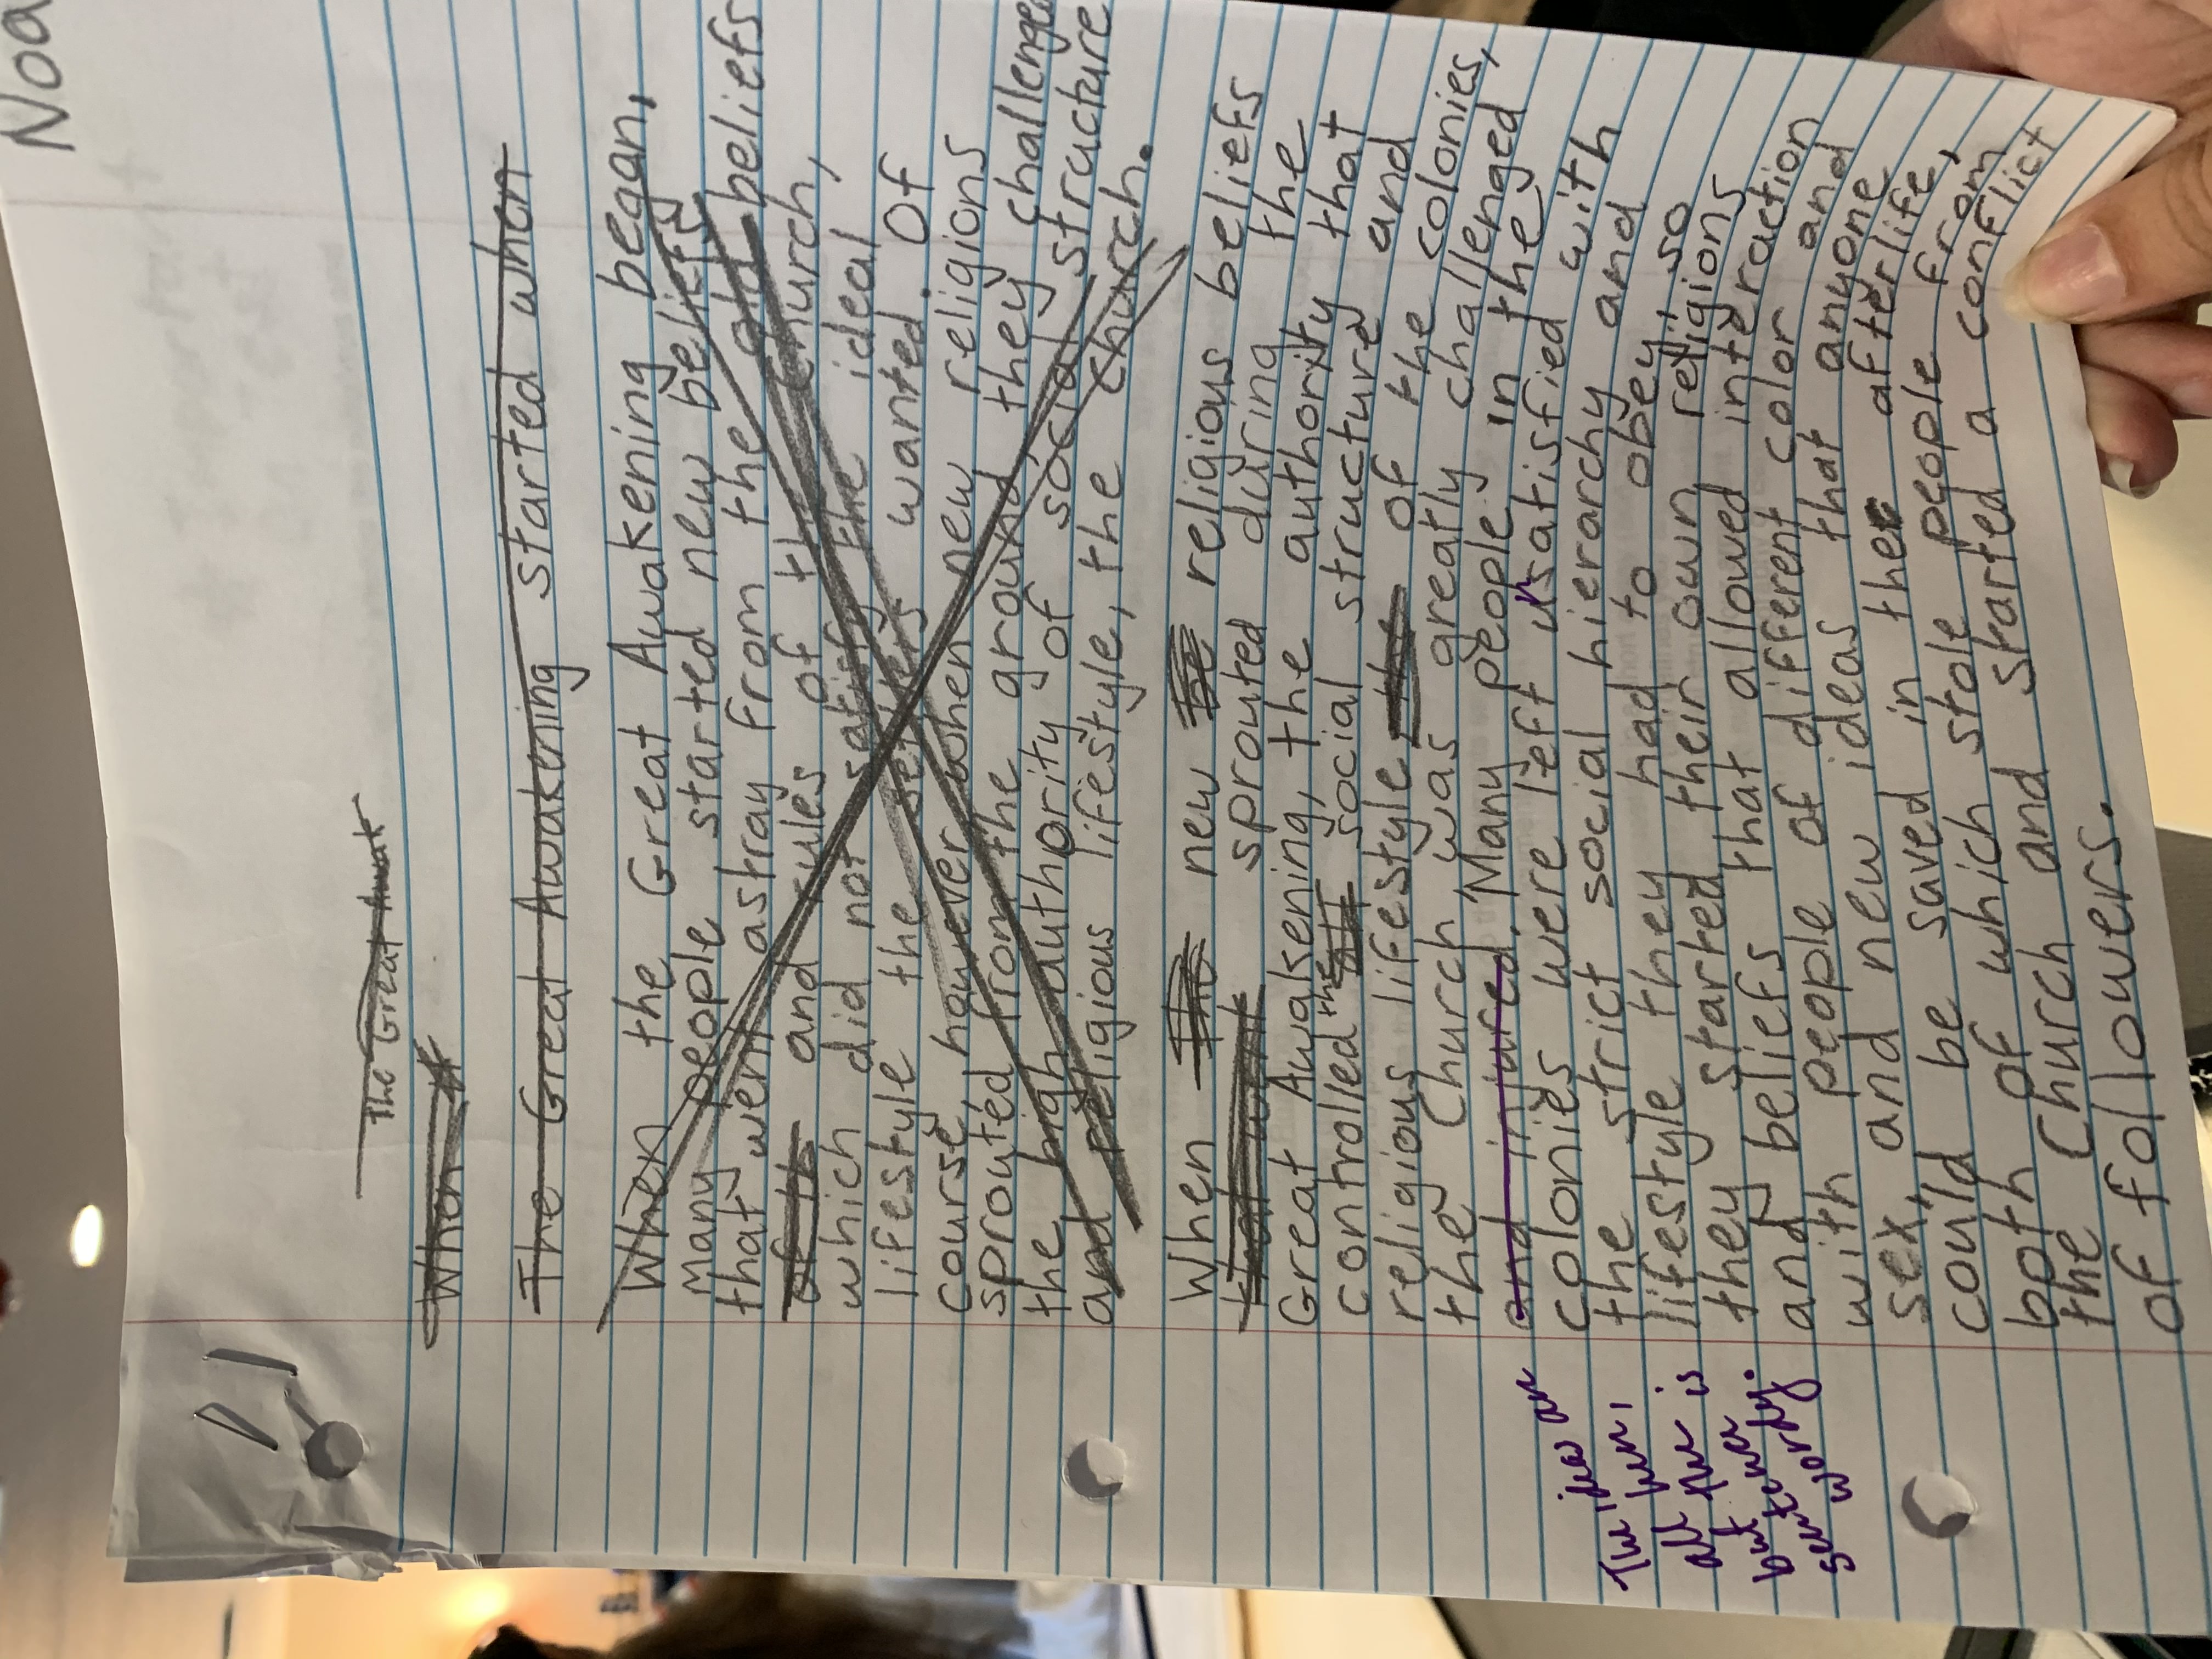 Noa
The Great Awak
When it
The Great Awakening started when
When the Great Awakening began,
many people started new beliefs
that went astray from the old beliefs
of th and rules of the Church,
which did not satisfy the ideal
lifestyle the settlers wanted. Of
course, however, when new religions
sprouted from the ground, they challenge
the high authority of social structure
and religious lifestyle, the church.
When the new be religious beliefs
that went sprouted during the
Great Awakening, the authority that
controlled the all social structure and
religious lifestyle, the of the colonies,
the Church, was greatly challenged
and injured. Many people in the
colonies were left unsatisfied with
the strict social hierarchy and
lifestyle they had to obey, so
they started their own religions
and beliefs that allowed interaction
with people of different color and
sex, and new ideas that anyone
could be saved in the afterlife,
both of which stole people from
the Church and started a conflict
of followers.
The ideas are
all here,
but the
sentence is
wordy.